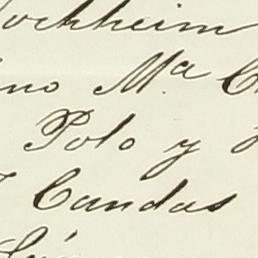 ockheim
ino Mª C
Polo y
Candas